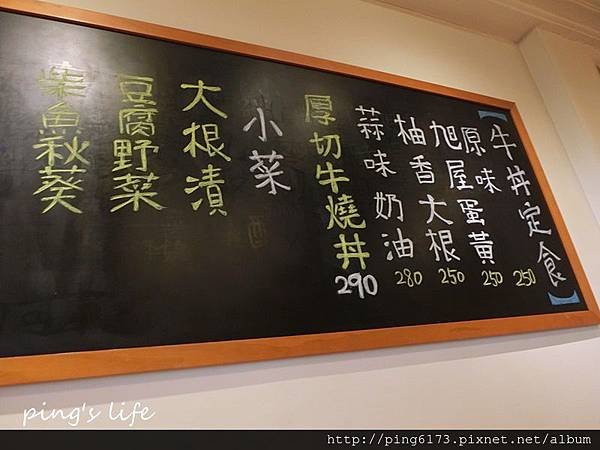 【牛丼定食】
原味 250
旭屋蛋黃 250
柚香大根 250
蒜味奶油 280
厚切牛燒丼 290
小菜
大根漬
豆腐野菜
柴魚秋葵
ping's life
http://ping6173.pixnet.net/album